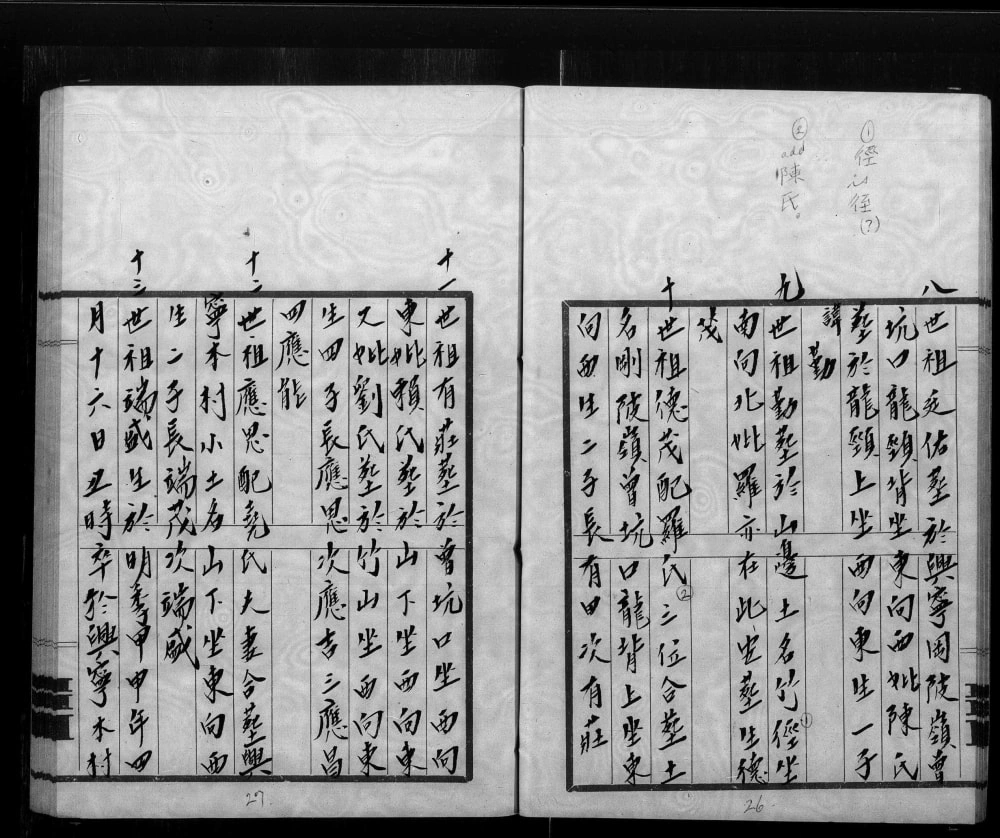 ① 徑 (?)
② add 陳氏。
八世祖廷佑墓於興寧困陂嶺曾
坑口龍頸背坐東向西妣陳氏
墓於龍頸上坐西向東生一子
諱勤
九世祖勤墓於山邊土名竹徑①坐
南向北妣羅亦在此安墓生德
茂
十世祖德茂配羅氏②三位合墓土
名剛陂嶺曾坑口龍背上坐東
向西生二子長有田次有莊
26
十一世祖有莊墓於曾坑口坐西向
東妣賴氏墓於山下坐西向東
又妣劉氏墓於竹山坐西向東
生四子長應思次應吉三應昌
四應能
十二世祖應思配堯氏夫妻合墓興
寧木村小土名山下坐東向西
生二子長端茂次端盛
十三世祖端盛生於明季甲申年四
月十六日丑時卒於興寧木村
27